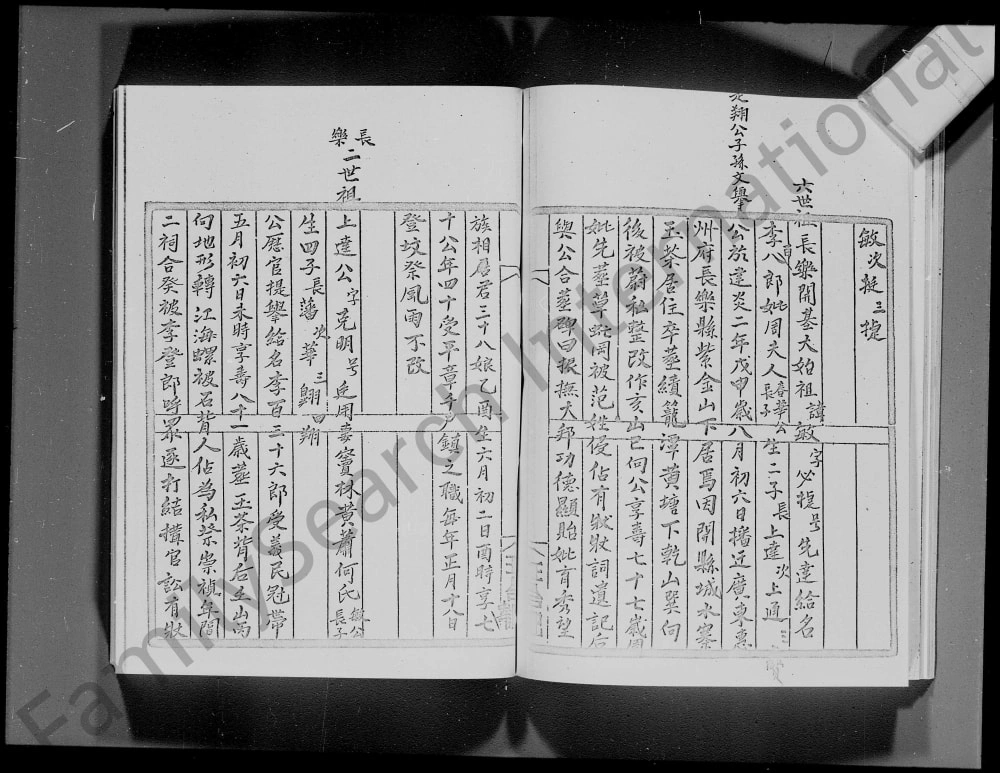 敏次挺三捷
六世祖長樂開基大始祖諱敏字必捷号先達給名
李八郎妣周夫人長子春華公生二子長上達次上通
公於建炎二年戊申歲八月初六日播迁廣東惠
州府長樂縣紫金山下居焉因開縣城水寨
玉茶居住卒塟績籠潭黄塘下乾山巽向
後被蔚私整改作亥山巳向公享壽七十七歲
妣先塟草蜢岡被范姓侵佔有狀狀詞遺記后
與公合塟碑曰振撫大邦功德顯貽妣育秀望
翔公子孫文舉
族相居君三十八娘乙酉生六月初二日酉時享七
十公年四十受平章千户鎮之職每年正月十八日
登坟祭風雨不改
長樂二世祖
上達公字克明号近用妻竇林黄蕭何氏敏公長子
生四子長藩次華三翶四翔
公蔭官提舉給名李百三十六郎受義民冠帶
五月初六日未時享壽八十一歲塟玉茶背后壬山丙
向地形轉江海螺被石背人佔為私祭崇禎年間
二祠合發被李登郎呼眾逐打結搆官訟有狀
FamilySearch International